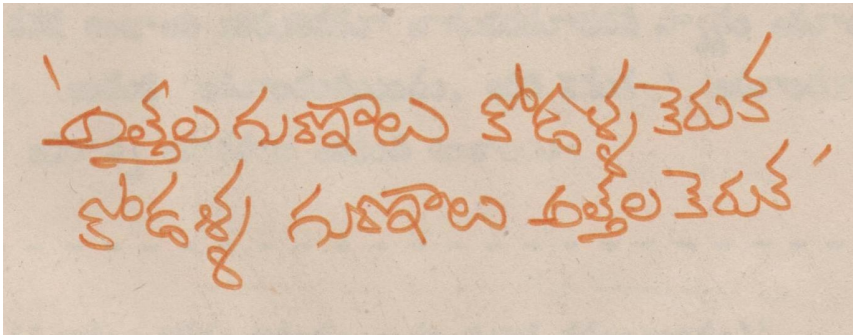 'అత్తల గుణాలు కోడళ్ళ కెరుక
కోడళ్ళ గుణాలు అత్తల కెరుక'